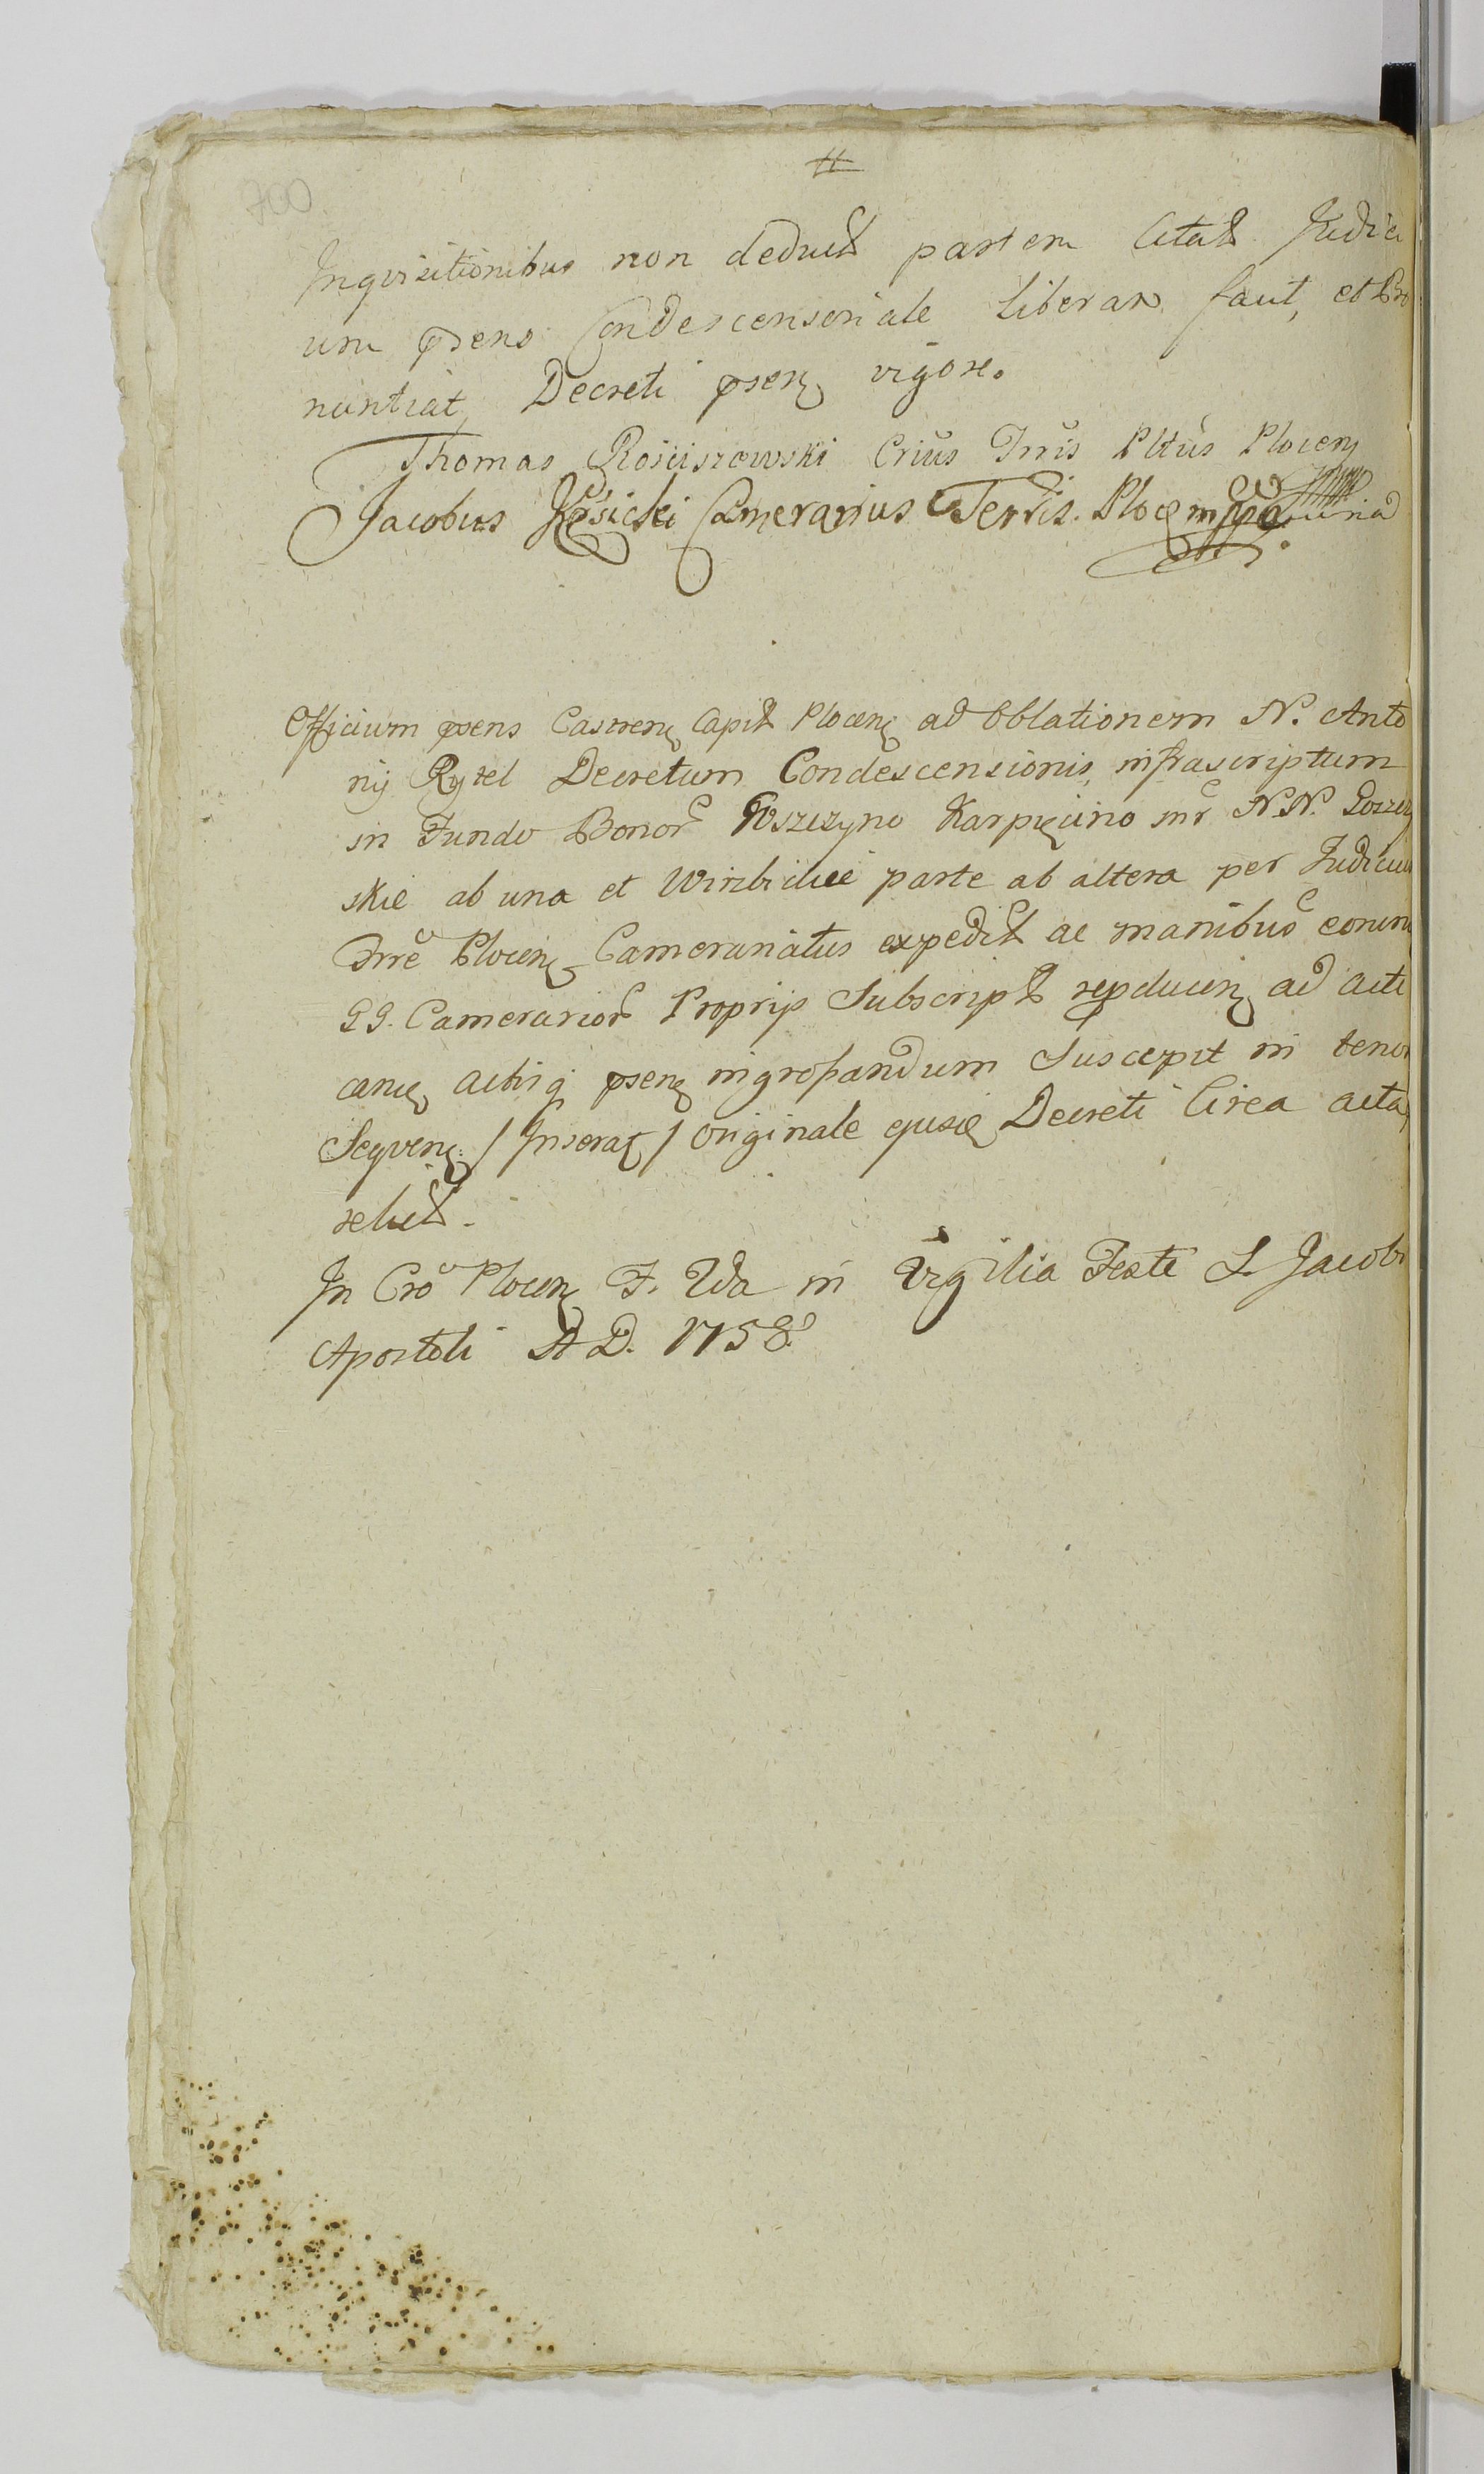 #
700
Inqvisitionibus non deduct partem Citat Judici
um psens Condescensoriale liberam facit, et Pro
nuntiat, Decreti psen vigore.
Thomas Rościszewski Crius Trris Pltus Plocen
Jacobus Camerarius Terris. Ploc mpp
Officium psens Castren Capit Plocen ad Oblationem N. Anto
nij Rytel Decretum Condescensionis infrascriptum
in Fundo Bonor Goszczyno Karpięcino inr N.N. Goszczy
skie ab una et Wirzbickie parte ab altera per Judicium
Trre Plocen Camerariatus expedit ac manibus eorun
GG. Camerarior Proprijs Subscript repducen ad acti
can actisq psen ingrossandum Suscepit in tenor
Seqven / Inserat / Originale ejusd Decreti Circa acta
relict.
In Cro Plocen F. IIda in Vigilia Festi S. Jacobi
Apostoli A D. 1758.